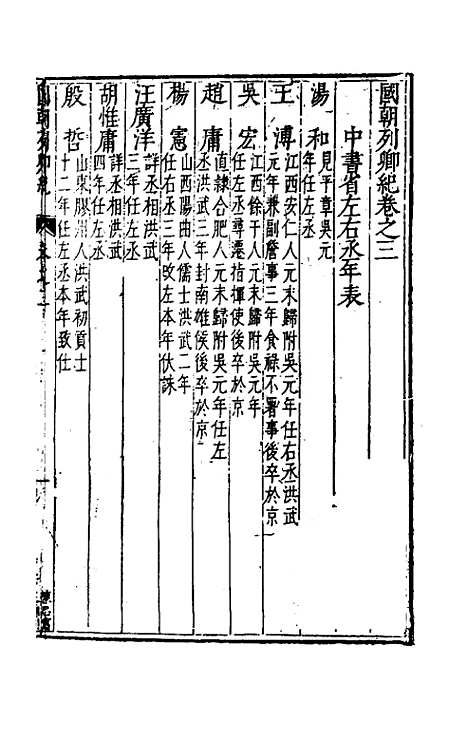 國朝列卿紀卷之三
中書省左右丞年表
湯和
見平章吳元
年任左丞
王溥
江西安仁人元末歸附吳元年任右丞洪武
元年兼副詹事三年食祿不署事後卒於京
吳宏
江西餘干人元末歸附吳元年
任左丞尋遷指揮使後卒於京
趙庸
直隸合肥人元末歸附吳元年任左
丞洪武三年封南雄侯後卒於京
楊憲
山西陽曲人儒士洪武二年
任右丞三年改左本年伏誅
汪廣洋
詳丞相洪武
三年任左丞
胡惟庸
詳丞相洪武
四年任左丞
殷哲
山東膠州人洪武初貢士
十二年任左丞本年致仕
國朝列卿紀
卷之三